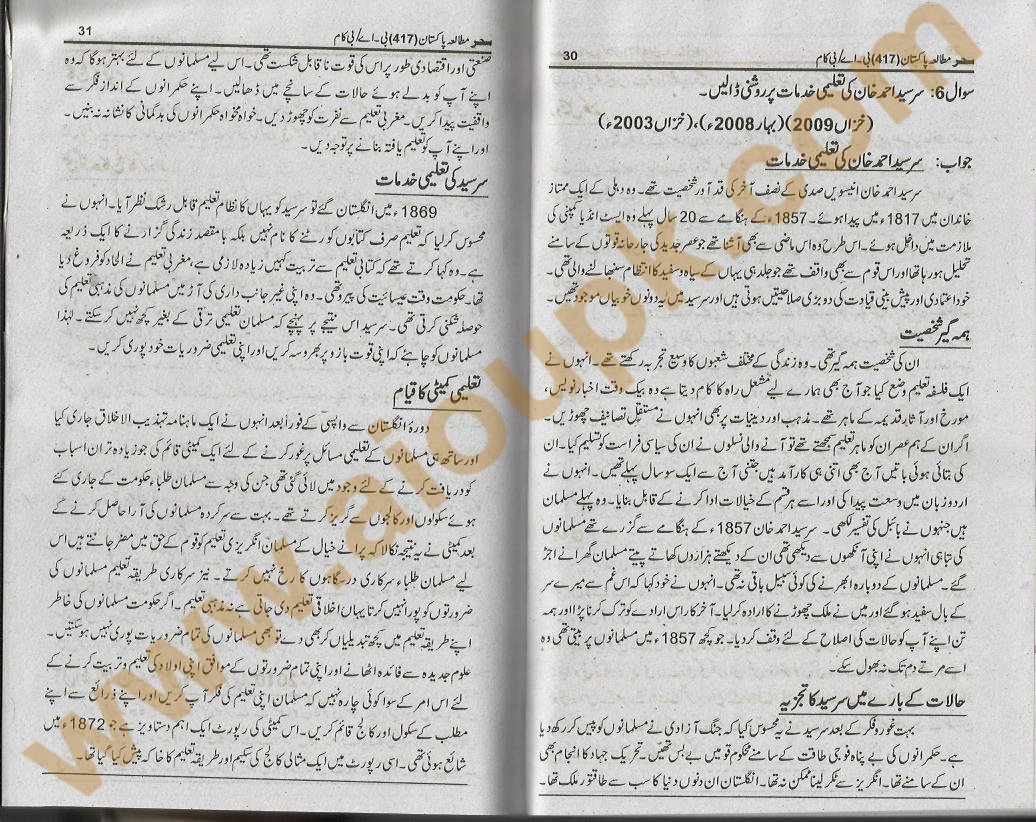 سحر مطالعہ پاکستان (417) بی۔اے/بی کام
30
سوال 6: سرسید احمد خان کی تعلیمی خدمات پر روشنی ڈالیں۔
(خزاں 2009)(بہار 2008ء)،(خزاں 2003ء)
جواب: سرسید احمد خان کی تعلیمی خدمات
سرسید احمد خان انیسویں صدی کے نصف آخر کی قد آور شخصیت تھے۔ وہ دہلی کے ایک ممتاز
خاندان میں 1817ء میں پیدا ہوئے۔ 1857ء کے ہنگامے سے 20 سال پہلے وہ ایسٹ انڈیا کمپنی کی
ملازمت میں داخل ہوئے۔ اس طرح وہ اس ماضی سے بھی آشنا تھے جو عصر جدید کی جارحانہ قوتوں کے سامنے
تحلیل ہو رہا تھا اور اس قوم سے بھی واقف تھے جو جلد ہی یہاں کے سیاہ و سفید کا انتظام سنبھالنے والی تھی۔
خود اعتمادی اور پیش بینی قیادت کی دو بڑی صلاحیتیں ہوتی ہیں اور سرسید میں یہ دونوں خوبیاں موجود تھیں۔
ہمہ گیر شخصیت
ان کی شخصیت ہمہ گیر تھی۔ وہ زندگی کے مختلف شعبوں کا وسیع تجربہ رکھتے تھے۔ انہوں نے
ایک فلسفہ تعلیم وضع کیا جو آج بھی ہمارے لیے مشعل راہ کا کام دیتا ہے وہ بیک وقت اخبار نویس،
مورخ اور آثار قدیمہ کے ماہر تھے۔ مذہب اور دینیات پر بھی انہوں نے مستقل تصانیف چھوڑیں۔
اگر ان کے ہم عصر ان کو ماہر تعلیم سمجھتے تھے تو آنے والی نسلوں نے ان کی سیاسی فراست کو تسلیم کیا۔ ان
کی بتائی ہوئی باتیں آج بھی اتنی ہی کارآمد ہیں جتنی آج سے ایک سو سال پہلے تھیں۔ انہوں نے
اردو زبان میں وسعت پیدا کی اور اسے ہر قسم کے خیالات ادا کرنے کے قابل بنایا۔ وہ پہلے مسلمان
ہیں جنہوں نے بائبل کی تفسیر لکھی۔ سرسید احمد خان 1857ء کے ہنگامے سے گزرے تھے مسلمانوں
کی تباہی انہوں نے اپنی آنکھوں سے دیکھی تھی ان کے دیکھتے ہزاروں کھاتے پیتے مسلمان گھرانے اجڑ
گئے۔ مسلمانوں کے دوبارہ ابھرنے کی کوئی سبیل باقی نہ تھی۔ انہوں نے خود کہا کہ اس غم سے میرے سر
کے بال سفید ہو گئے اور میں نے ملک چھوڑنے کا ارادہ کر لیا۔ آخر کار اس ارادے کو ترک کرنا پڑا اور ہمہ
تن اپنے آپ کو حالات کی اصلاح کے لئے وقف کر دیا۔ جو کچھ 1857ء میں مسلمانوں پر بیتی تھی وہ
اسے مرتے دم تک نہ بھول سکے۔
حالات کے بارے میں سرسید کا تجزیہ
بہت غور و فکر کے بعد سرسید نے یہ محسوس کیا کہ جنگ آزادی نے مسلمانوں کو پیس کر رکھ دیا
ہے۔ حکمرانوں کی بے پناہ فوجی طاقت کے سامنے محکوم قومیں بے بس تھیں۔ تحریک جہاد کا انجام بھی
ان کے سامنے تھا۔ انگریز سے ٹکر لینا ممکن نہ تھا۔ انگلستان ان دنوں دنیا کا سب سے طاقتور ملک تھا۔
سحر مطالعہ پاکستان (417) بی۔اے/بی کام
31
صنعتی اور اقتصادی طور پر اس کی قوت ناقابل شکست تھی۔ اس لیے مسلمانوں کے لئے بہتر ہوگا کہ وہ
اپنے آپ کو بدلے ہوئے حالات کے سانچے میں ڈھالیں۔ اپنے حکمرانوں کے انداز فکر سے
واقفیت پیدا کریں۔ مغربی تعلیم سے نفرت کو چھوڑ دیں۔ خواہ مخواہ حکمرانوں کی بدگمانی کا نشانہ نہ بنیں۔
اور اپنے آپ کو تعلیم یافتہ بنانے پر توجہ دیں۔
سرسید کی تعلیمی خدمات
1869ء میں انگلستان گئے تو سرسید کو یہاں کا نظام تعلیم قابل رشک نظر آیا۔ انہوں نے
محسوس کر لیا کہ تعلیم صرف کتابوں کو رٹنے کا نام نہیں بلکہ بامقصد زندگی گزارنے کا ایک ذریعہ
ہے۔ وہ کہا کرتے تھے کہ کتابی تعلیم سے تربیت کہیں زیادہ لازمی ہے، مغربی تعلیم نے الحاد کو فروغ دیا
تھا۔ حکومت وقت عیسائیت کی پیرو تھی۔ وہ اپنی غیر جانب داری کی آڑ میں مسلمانوں کی مذہبی تعلیم کی
حوصلہ شکنی کرتی تھی۔ سرسید اس نتیجے پر پہنچے کہ مسلمان تعلیمی ترقی کے بغیر کچھ نہیں کر سکتے۔ لہٰذا
مسلمانوں کو چاہئے کہ اپنی قوت بازو پر بھروسہ کریں اور اپنی تعلیمی ضروریات خود پوری کریں۔
تعلیمی کمیٹی کا قیام
دورۂ انگلستان سے واپسی کے فوراً بعد انہوں نے ایک ماہنامہ تہذیب الاخلاق جاری کیا
اور ساتھ ہی مسلمانوں کے تعلیمی مسائل پر غور کرنے کے لئے ایک کمیٹی قائم کی جو زیادہ تر ان اسباب
کو دریافت کرنے کے لئے وجود میں لائی گئی تھی جن کی وجہ سے مسلمان طلباء حکومت کے جاری کئے
ہوئے سکولوں اور کالجوں سے گریز کرتے تھے۔ بہت سے سرکردہ مسلمانوں کی آرا حاصل کرنے کے
بعد کمیٹی نے یہ نتیجہ نکالا کہ پرانے خیال کے مسلمان انگریزی تعلیم کو قوم کے حق میں مضر جانتے ہیں اس
لیے مسلمان طلباء سرکاری درسگاہوں کا رخ نہیں کرتے۔ نیز سرکاری طریقہ تعلیم مسلمانوں کی
ضرورتوں کو پورا نہیں کرتا یہاں اخلاقی تعلیم دی جاتی ہے نہ مذہبی تعلیم۔ اگر حکومت مسلمانوں کی خاطر
اپنے طریقہ تعلیم میں کچھ تبدیلیاں کر بھی دے تو بھی مسلمانوں کی تمام ضروریات پوری نہیں ہوسکتیں۔
علوم جدیدہ سے فائدہ اٹھانے اور اپنی تمام ضرورتوں کے موافق اپنی اولاد کی تعلیم و تربیت کرنے کے
لئے اس امر کے سوا کوئی چارہ نہیں کہ مسلمان اپنی تعلیم کی فکر آپ کریں اور اپنے ذرائع سے اپنے
مطلب کے سکول اور کالج قائم کریں۔ اس کمیٹی کی رپورٹ ایک اہم دستاویز ہے جو 1872ء میں
شائع ہوئی تھی۔ اسی رپورٹ میں ایک مثالی کالج کی سکیم اور طریقہ تعلیم کا خاکہ پیش کیا گیا تھا۔
www.aioupk.com